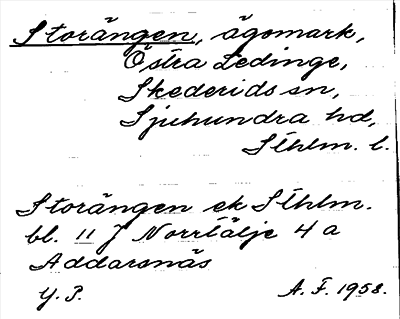 Storängen, ägomark,
Östra Ledinge,
Skederids sn,
Sjuhundra hd,
Sthlm. l.
Storängen ek Sthlm.
bl. 11 J Norrtälje 4 a
Addarsnäs
Y. P. A. F. 1958.